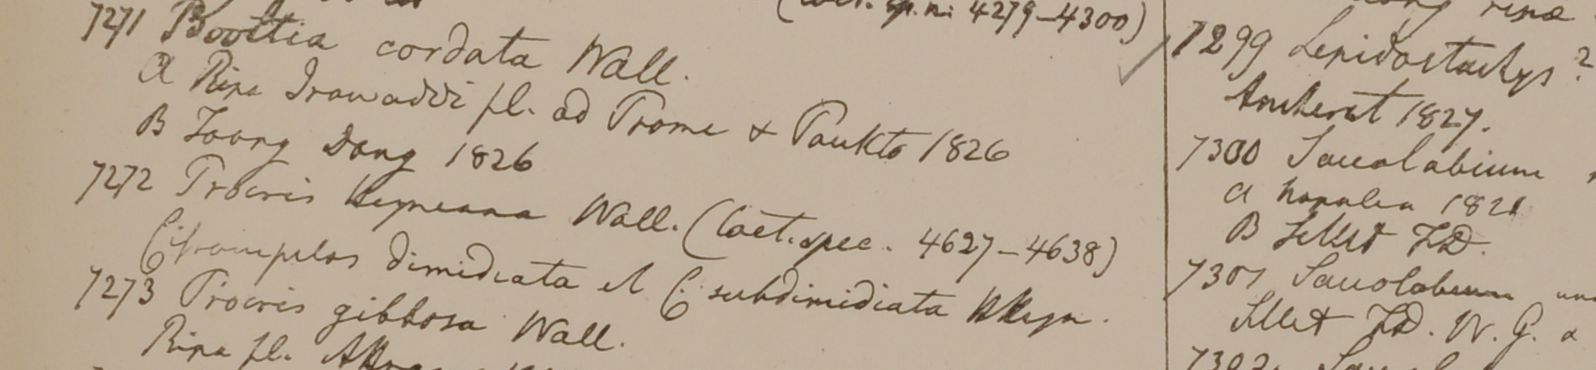 (Caet. sp. n: 4279-4300)
7271 Boottia cordata Wall.
a Ripa Irawaddi fl. ad Prome & Paukto 1826
B Toong Dong 1826
7272 Procris Heyneana Wall. (Caet. spec. 4627-4638)
Cissampelos dimidiata et C. subdimidiata Hb Heyn.
7273 Procris gibbosa Wall.
Ripa fl.
7299 Lepidostachys?
Amherst 1827.
7300 Saccolabium
a Napalia 1821
B Sillet FD.
7301 Saccolabium
Sillet FD. W. G. a